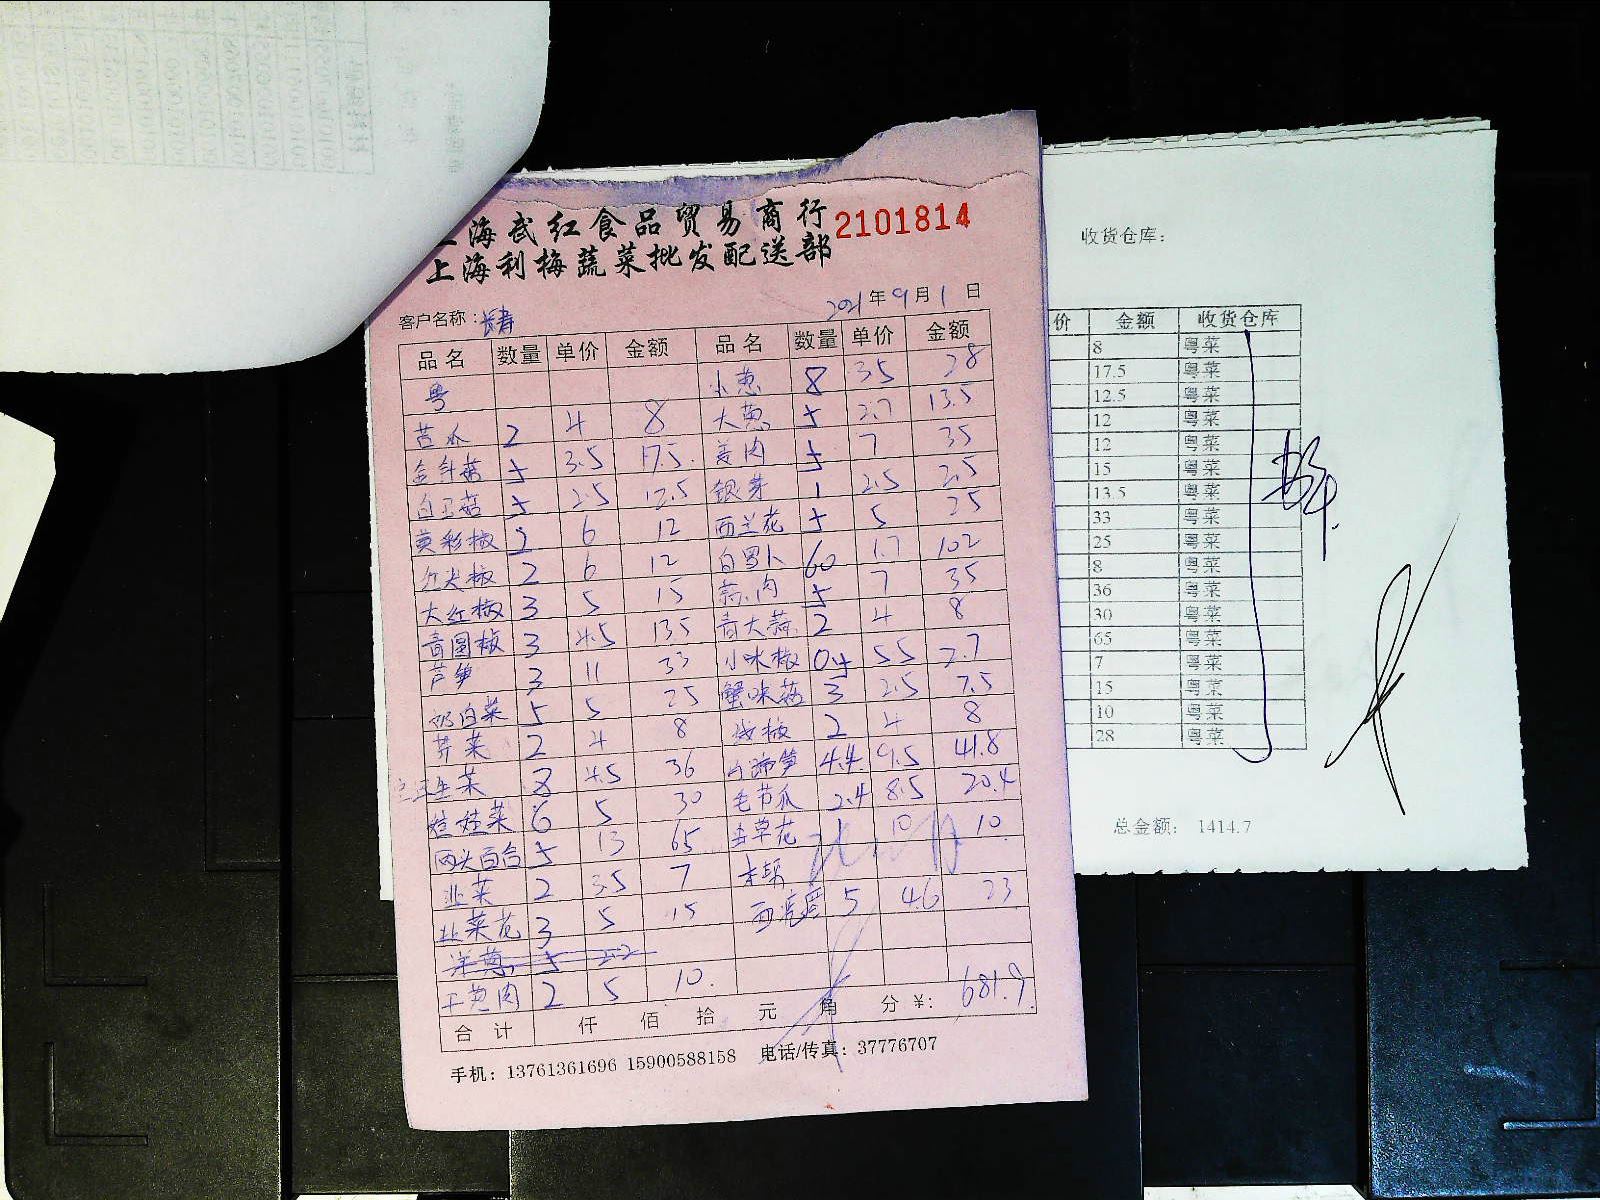 上海武红食品贸易商行 2101814
上海利梅蔬菜批发配送部
客户名称: 2021年9月1日
品名 数量 单价 金额 品名 数量 单价 金额
粤 小葱 8 35 28
苦瓜 2 4 8 大葱 5 2.7 13.5
金针菇 5 3.5 17.5. 姜肉 5 7 35
白玉菇 5 2.5 12.5 银芽 1 2.5 2.5
美彩椒 2 6 12 西兰花 5 5 25
红尖椒 2 6 12 白罗卜 60 1.7 102
大红椒 3 5 15 蒜肉 5 7 35
青圆椒 3 4.5 13.5 青大蒜 2 4 8
芦笋 3 11 33 小米椒 04 55 2.7
奶白菜 5 5 25 蟹味菇 3 2.5 7.5
芹菜 2 4 8 2 4 8
生菜 8 4.5 36 4.4 9.5 41.8
娃娃菜 6 5 30 毛节瓜 2.4 8.5 20.4
两头百合 5 13 65 虫草花 1 10 10
韭菜 2 3.5 7 本帮
韭菜花 3 5 15 5 46 23
洋葱 5 2.2
干葱肉 2 5 10.
合计 仟 佰 拾 元 角 分 ¥: 681.9
手机: 13761361696 15900588158 电话/传真: 37776707
收货仓库:
价 金额 收货仓库
8 粤菜
17.5 粤菜
12.5 粤菜
12 粤菜
12 粤菜
15 粤菜
13.5 粤菜
33 粤菜
25 粤菜
8 粤菜
36 粤菜
30 粤菜
65 粤菜
7 粤菜
15 粤菜
10 粤菜
28 粤菜
总金额: 1414.7